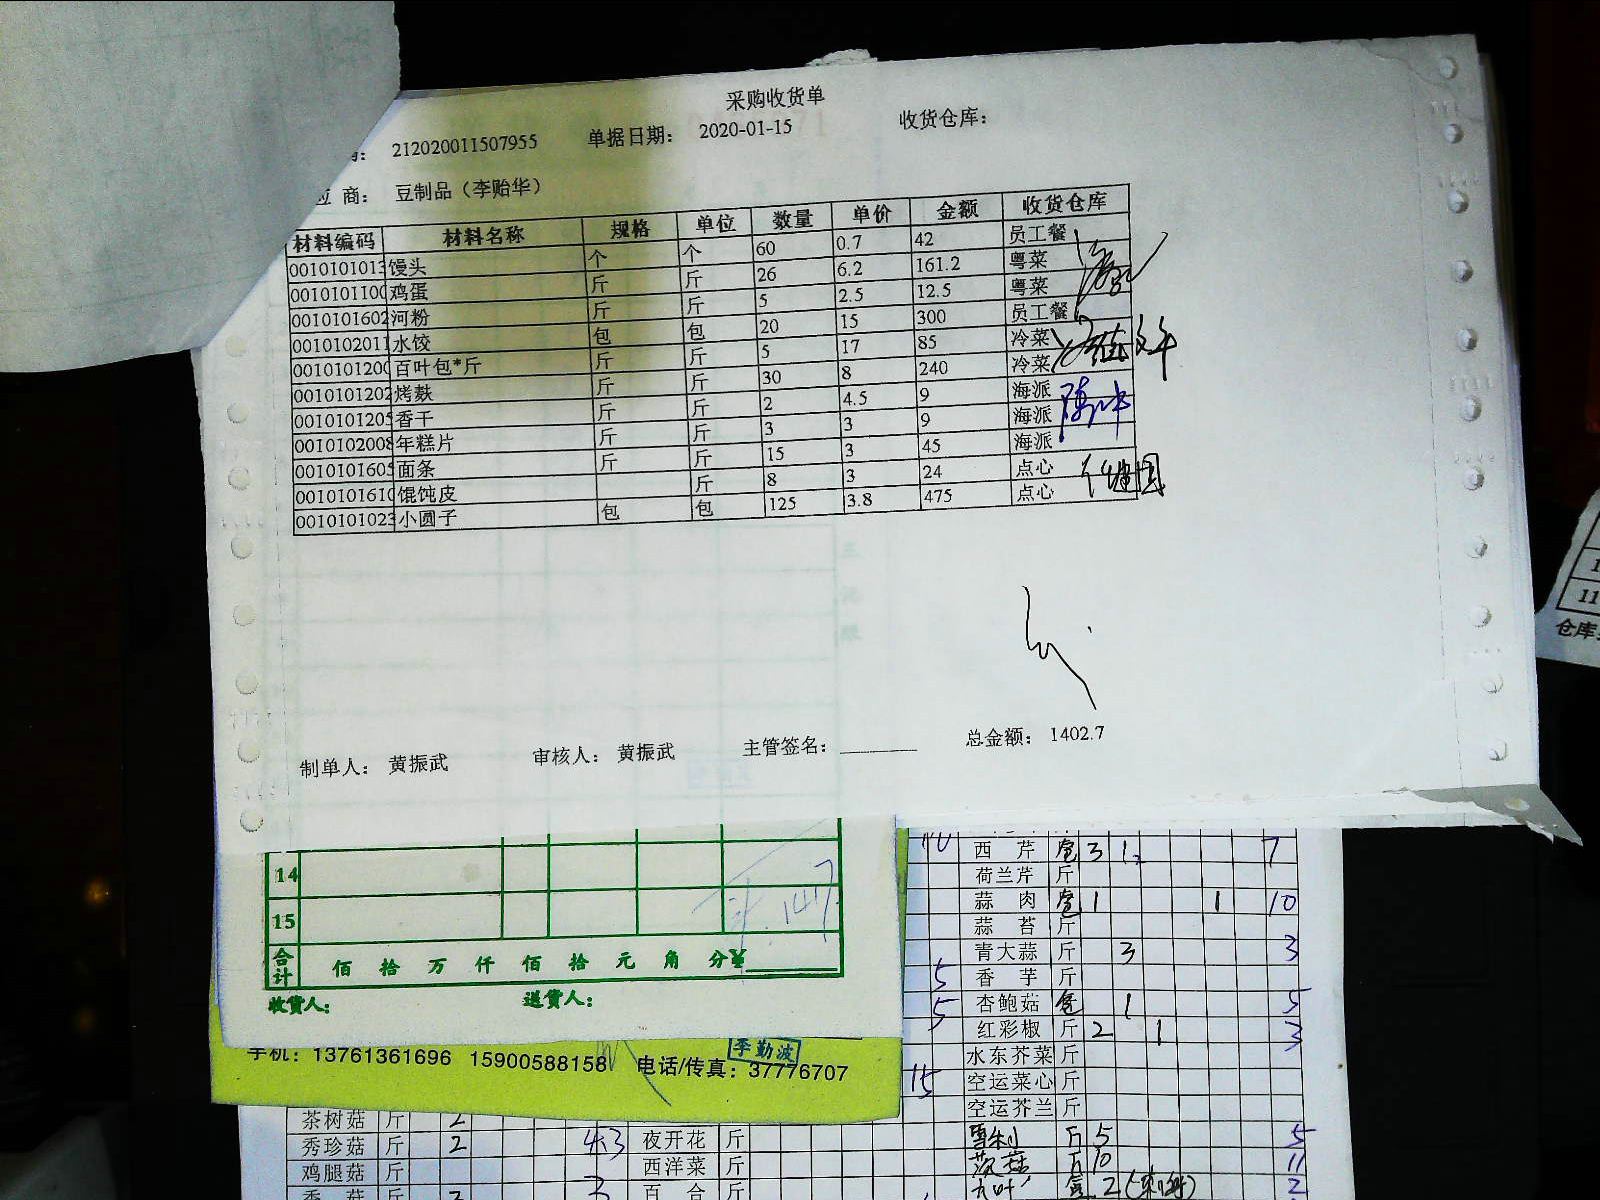 采购收货单
码： 212020011507955 单据日期： 2020-01-15 收货仓库：
应 商： 豆制品（李贻华）
材料编码 材料名称 规格 单位 数量 单价 金额 收货仓库
0010101013 馒头 个 个 60 0.7 42 员工餐
0010101100 鸡蛋 斤 斤 26 6.2 161.2 粤菜
0010101602 河粉 斤 斤 5 2.5 12.5 粤菜
0010102011 水饺 包 包 20 15 300 员工餐
0010101200 百叶包*斤 斤 斤 5 17 85 冷菜
0010101202 烤麸 斤 斤 30 8 240 冷菜
0010101205 香干 斤 斤 2 4.5 9 海派
0010102008 年糕片 斤 斤 3 3 9 海派
0010101605 面条 斤 斤 15 3 45 海派
0010101610 馄饨皮 斤 8 3 24 点心
0010101023 小圆子 包 包 125 3.8 475 点心
制单人： 黄振武 审核人： 黄振武 主管签名： 总金额： 1402.7
14
15
合计 佰 拾 万 仟 佰 拾 元 角 分¥
收货人： 送货人：
李勤波
手机：13761361696 15900588158 电话/传真：37776707
西 芹 3 1 7
荷兰芹 斤
蒜 肉 1 1 10
蒜 苔 斤
青大蒜 斤 3 3
5 香 芋 斤
5 杏鲍菇 1 5
红彩椒 斤 2 1 3
水东芥菜 斤
15 空运菜心 斤
空运芥兰 斤
斤 5 5
斤 10 11
2 2
茶树菇 斤 2
秀珍菇 斤 2 4.3 夜开花 斤
鸡腿菇 斤 西洋菜 斤
香 菇 百 合 斤
11
仓库：